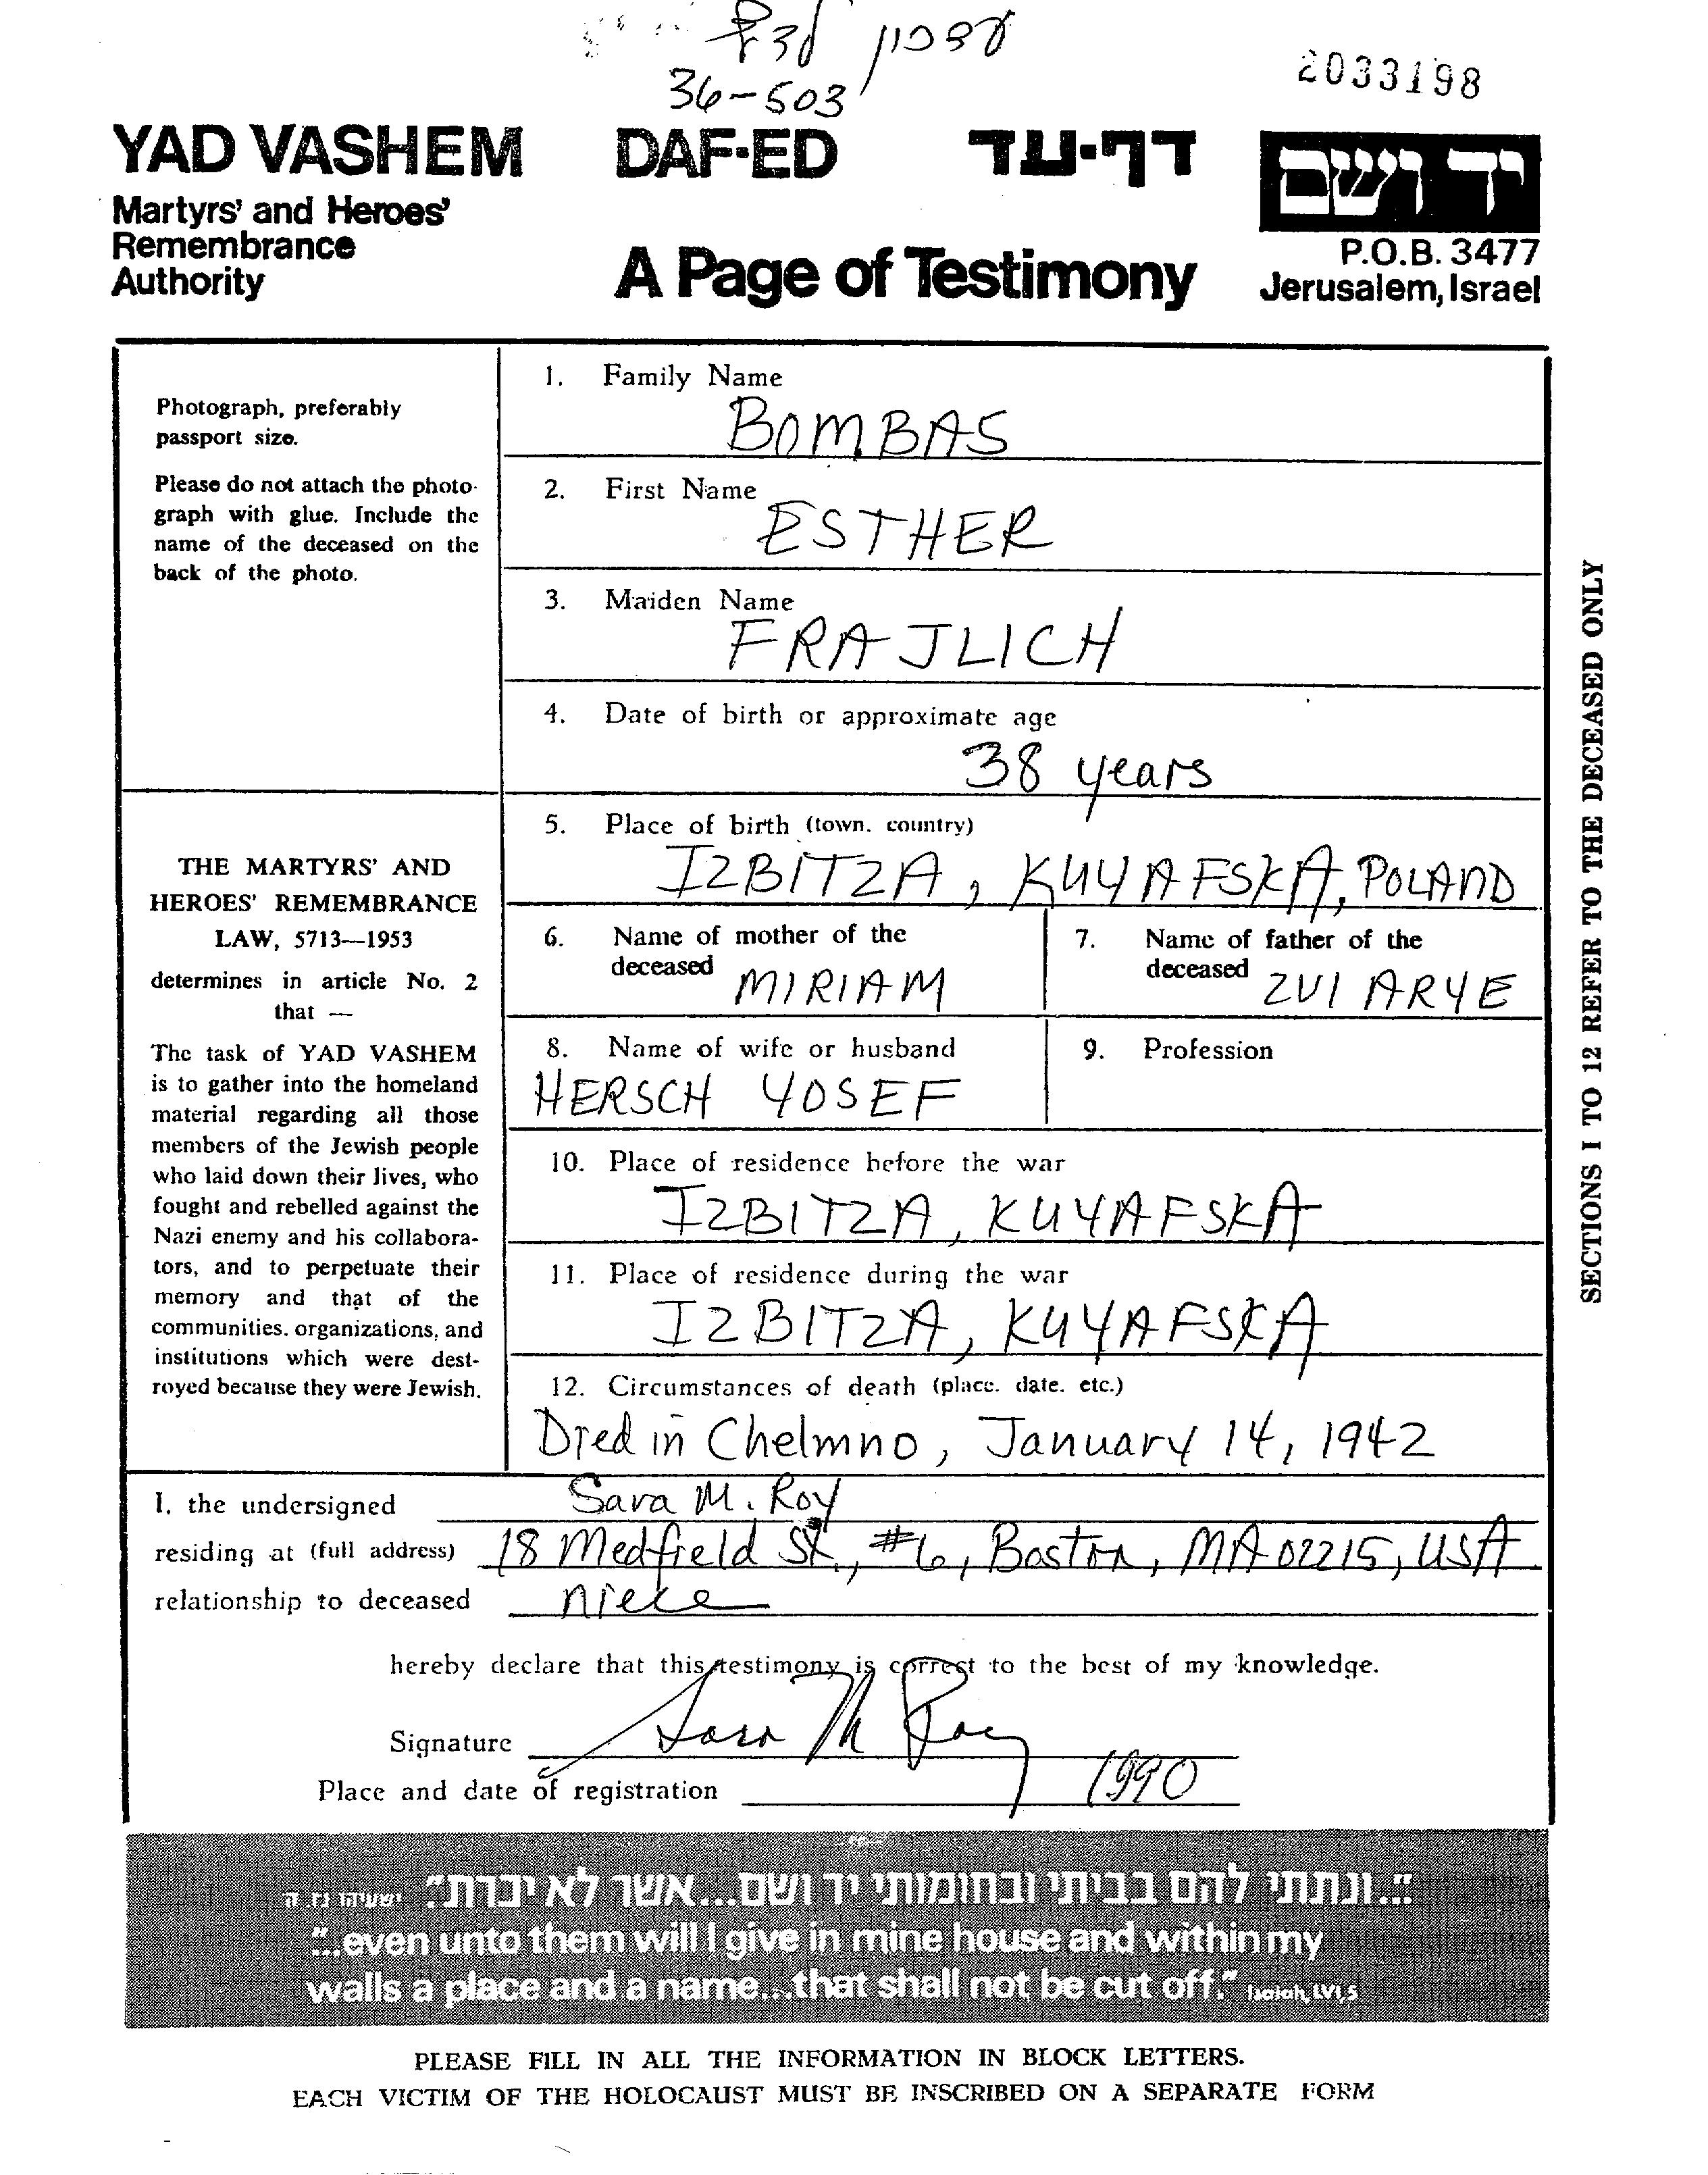 36-503
2033198
YAD VASHEM DAF-ED דף-עד יד ושם
Martyrs' and Heroes'
Remembrance
Authority
A Page of Testimony
P.O.B. 3477
Jerusalem, Israel
Photograph, preferably
passport size.
Please do not attach the photo-
graph with glue. Include the
name of the deceased on the
back of the photo.
THE MARTYRS' AND
HEROES' REMEMBRANCE
LAW, 5713—1953
determines in article No. 2
that —
The task of YAD VASHEM
is to gather into the homeland
material regarding all those
members of the Jewish people
who laid down their lives, who
fought and rebelled against the
Nazi enemy and his collabora-
tors, and to perpetuate their
memory and that of the
communities, organizations, and
institutions which were dest-
royed because they were Jewish.
1. Family Name
BOMBAS
2. First Name
ESTHER
3. Maiden Name
FRAJLICH
4. Date of birth or approximate age
38 years
5. Place of birth (town, country)
IZBITZA, KUYAFSKA, POLAND
6. Name of mother of the
deceased MIRIAM
7. Name of father of the
deceased ZVI ARYE
8. Name of wife or husband
HERSCH YOSEF
9. Profession
10. Place of residence before the war
IZBITZA, KUYAFSKA
11. Place of residence during the war
IZBITZA, KUYAFSKA
12. Circumstances of death (place, date, etc.)
Died in Chelmno, January 14, 1942
SECTIONS 1 TO 12 REFER TO THE DECEASED ONLY
I, the undersigned Sara M. Roy
residing at (full address) 18 Medfield St., #6, Boston, MA 02215, USA
relationship to deceased niece
hereby declare that this testimony is correct to the best of my knowledge.
Signature Sara M Roy
Place and date of registration 1990
"...ונתתי להם בביתי ובחומותי יד ושם...אשר לא יכרת" ישעיהו נו ה
"...even unto them will I give in mine house and within my
walls a place and a name...that shall not be cut off." Isaiah, LVI,5
PLEASE FILL IN ALL THE INFORMATION IN BLOCK LETTERS.
EACH VICTIM OF THE HOLOCAUST MUST BE INSCRIBED ON A SEPARATE FORM